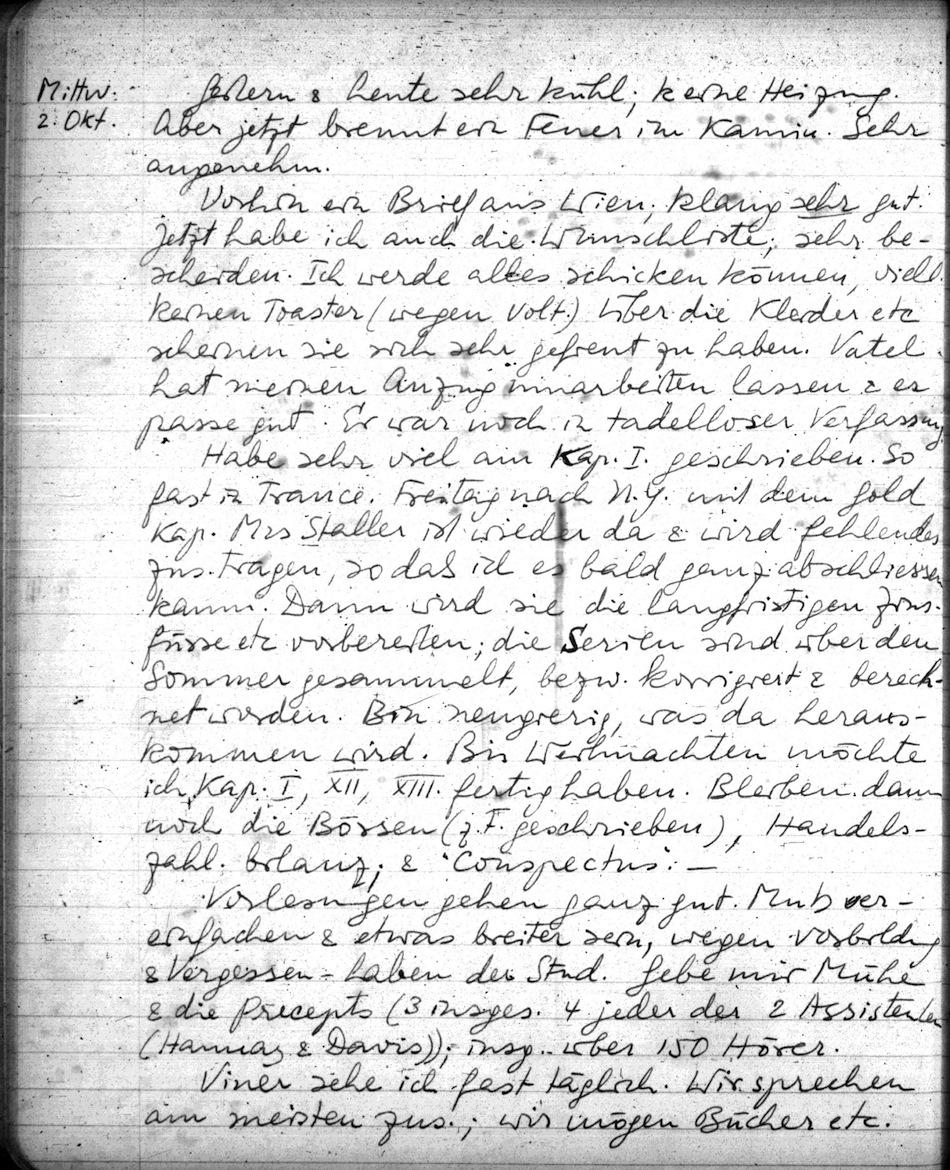 Mittw.
2. Okt.
Gestern & heute sehr kühl; keine Heizung.
Aber jetzt brennt ein Feuer im Kamin. Sehr
angenehm.
Vorhin ein Brief aus Wien, klang sehr gut.
Jetzt habe ich auch die Wunschliste, sehr be-
scheiden. Ich werde alles schicken können, viell.
keinen Toaster (wegen Volt.) Über die Kleider etc
scheinen sie sich sehr gefreut zu haben. Vater
hat meinen Anzug umarbeiten lassen & er
passe gut. Er war noch in tadelloser Verfassung
Habe sehr viel am Kap. I. geschrieben. So
fast in Trance. Freitag nach N.Y. mit dem Gold
Kap. Mrs Staller ist wieder da & wird fehlendes
zus.tragen, so daß ich es bald ganz abschliessen
kann. Dann wird sie die langfristigen Zins-
füsse etc vorbereiten; die Serien sind über den
Sommer gesammelt, bezw. korrigiert & berech-
net worden. Bin neugierig, was da heraus-
kommen wird. Bis Weihnachten möchte
ich Kap. I, XII, XIII. fertig haben. Bleiben dann
noch die Börsen (z.T. geschrieben), Handels-
zahl. bilanz; & "Conspectus". —
Vorlesungen gehen ganz gut. Muß ver-
einfachen & etwas breiter sein, wegen Vorbildung
& Vergessen-haben der Stud. Gebe mir Mühe
& die Precepts (3 insges. 4 jeder der 2 Assistenten
(Hannay & Davis)); insg. über 150 Hörer.
Viner sehe ich fast täglich. Wir sprechen
am meisten zus.; wir mögen Bücher etc.